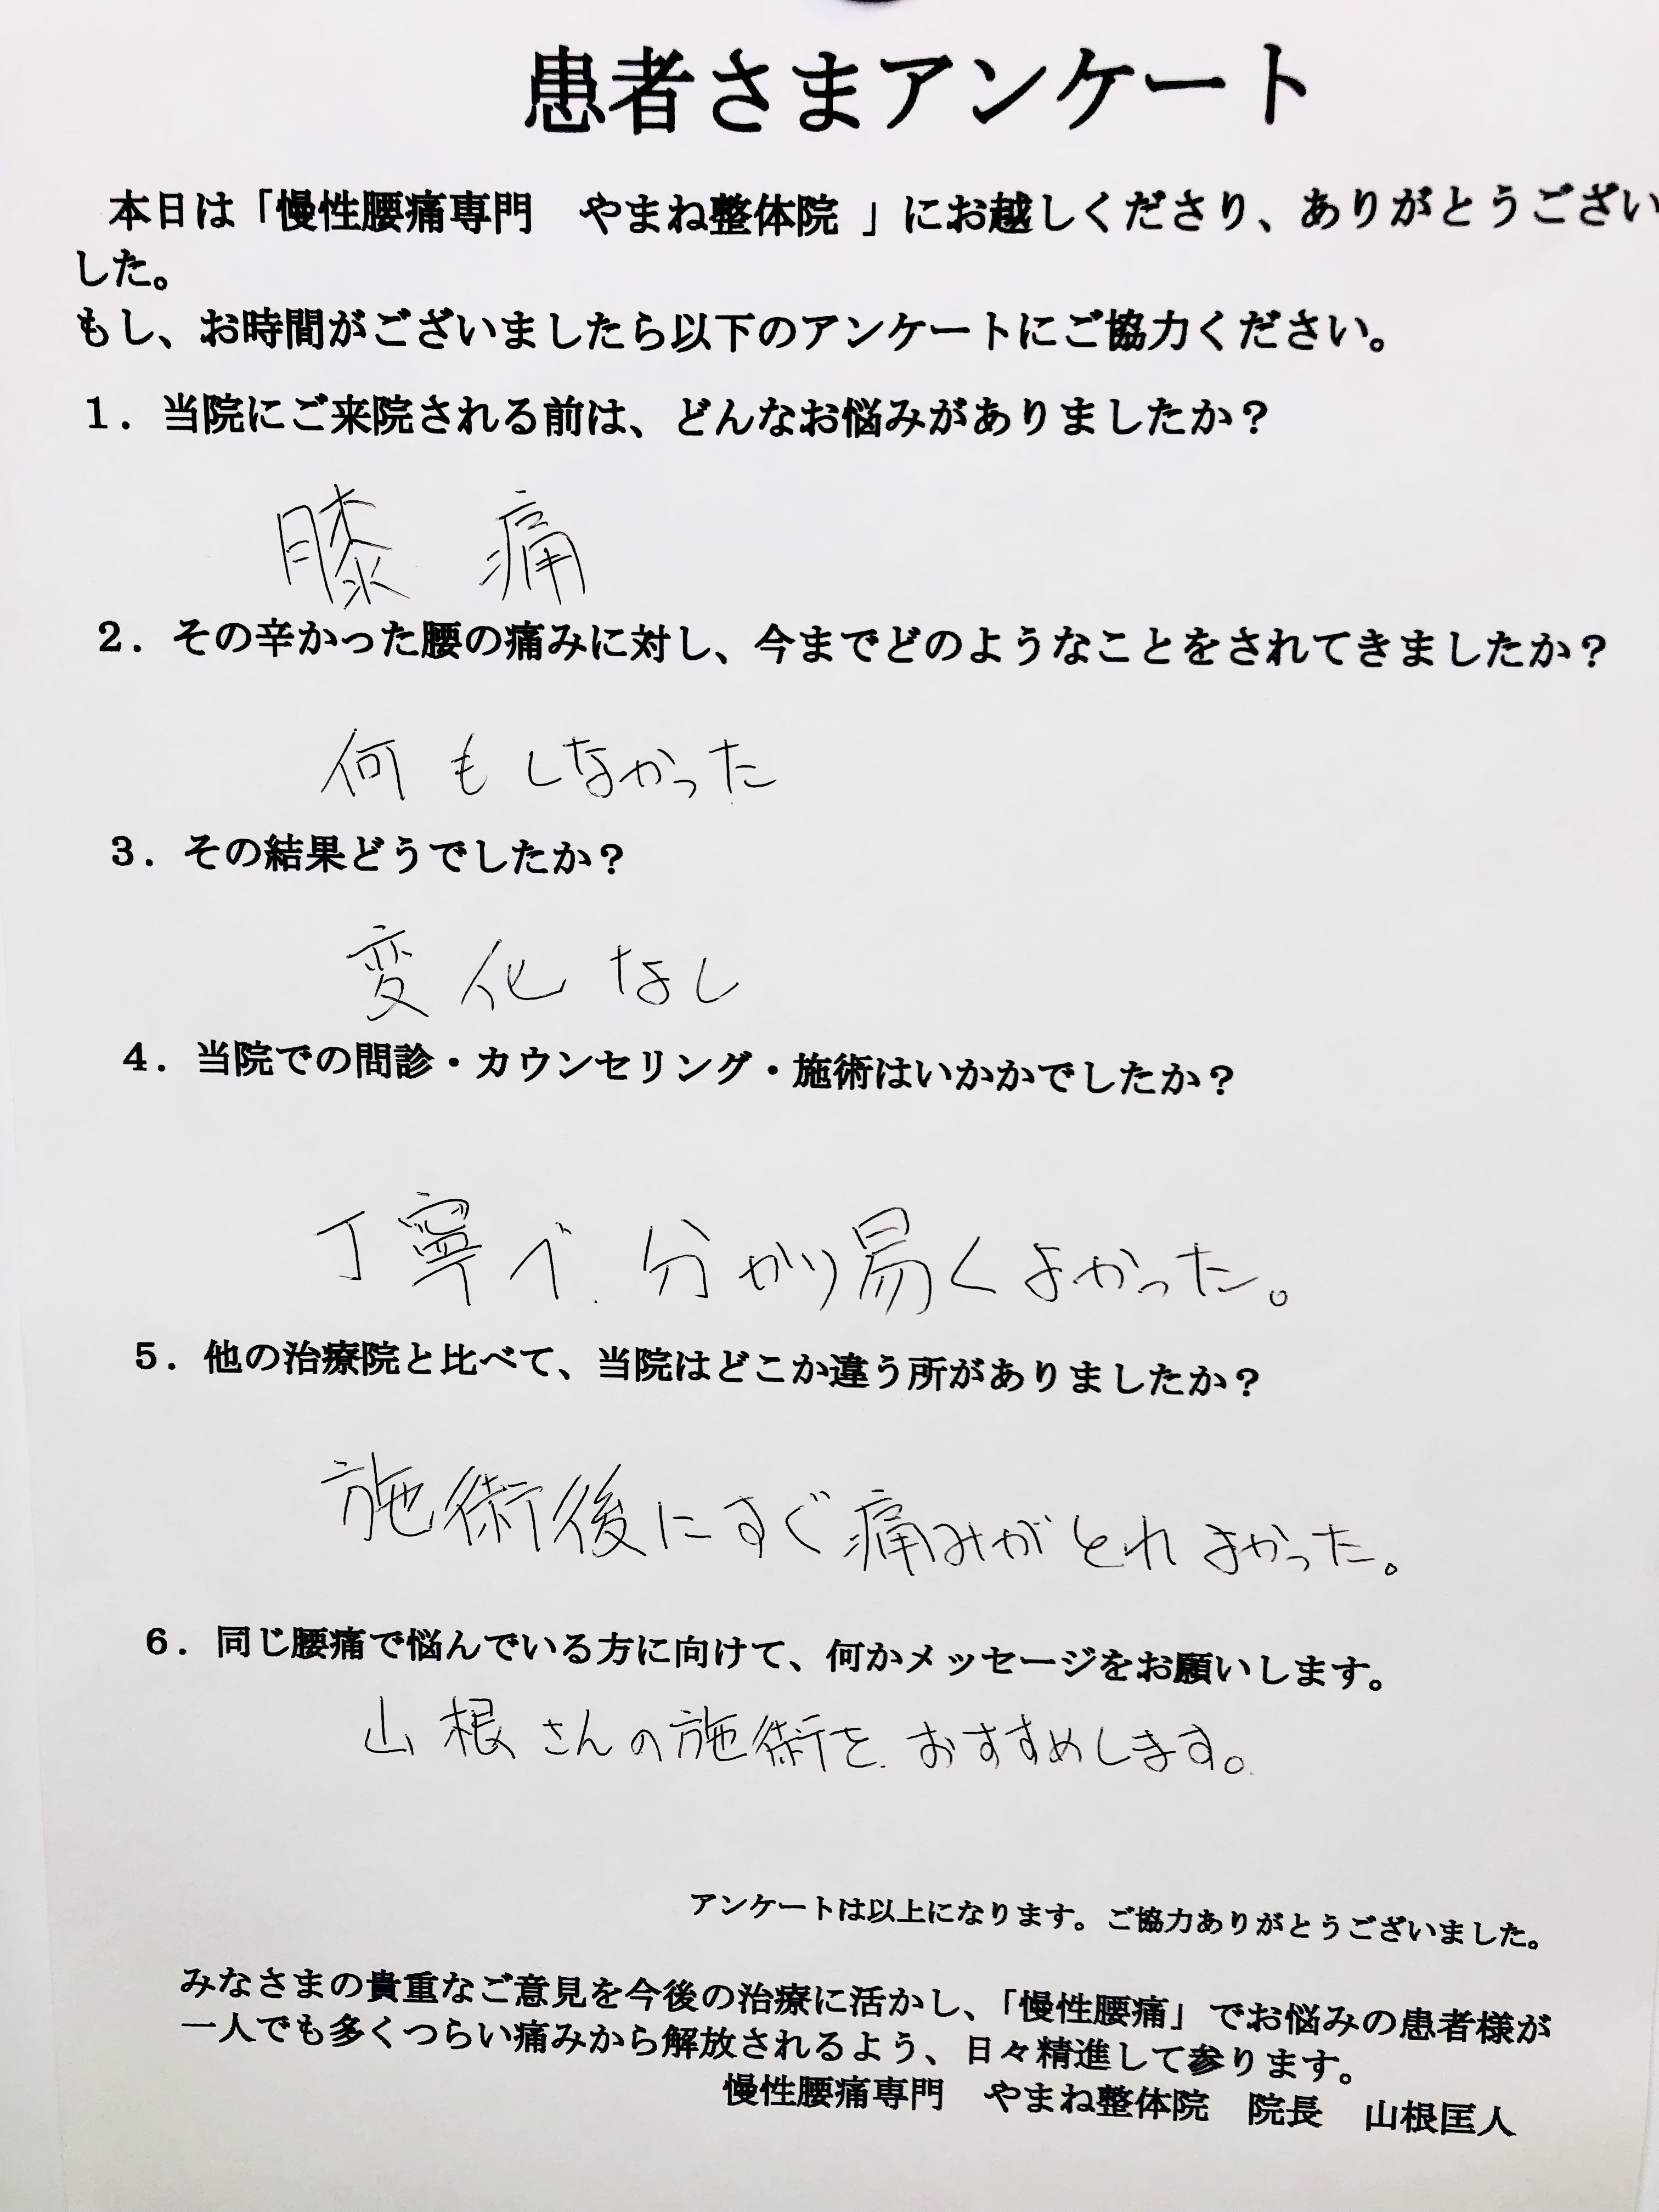 患者さまアンケート
本日は「慢性腰痛専門　やまね整体院 」にお越しくださり、ありがとうござい
した。
もし、お時間がございましたら以下のアンケートにご協力ください。
１．当院にご来院される前は、どんなお悩みがありましたか？
膝 痛
２．その辛かった腰の痛みに対し、今までどのようなことをされてきましたか？
何もしなかった
３．その結果どうでしたか？
変化なし
４．当院での問診・カウンセリング・施術はいかかでしたか？
丁寧で、分かり易くよかった。
５．他の治療院と比べて、当院はどこか違う所がありましたか？
施術後にすぐ痛みがとれよかった。
６．同じ腰痛で悩んでいる方に向けて、何かメッセージをお願いします。
山根さんの施術を、おすすめします。
アンケートは以上になります。ご協力ありがとうございました。
みなさまの貴重なご意見を今後の治療に活かし、「慢性腰痛」でお悩みの患者様が
一人でも多くつらい痛みから解放されるよう、日々精進して参ります。
慢性腰痛専門　やまね整体院　院長　山根匡人